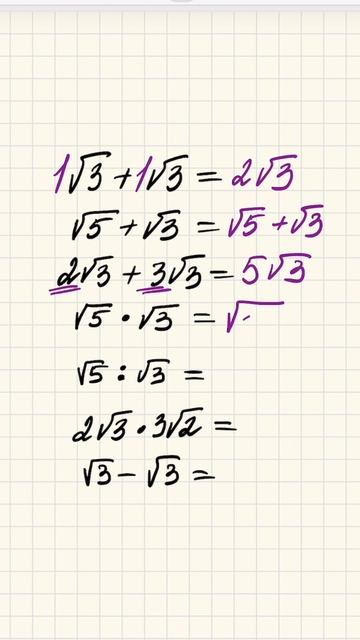 1√3 + 1√3 = 2√3
√5 + √3 = √5 + √3
2√3 + 3√3 = 5√3
√5 · √3 = √
√5 : √3 =
2√3 · 3√2 =
√3 − √3 =